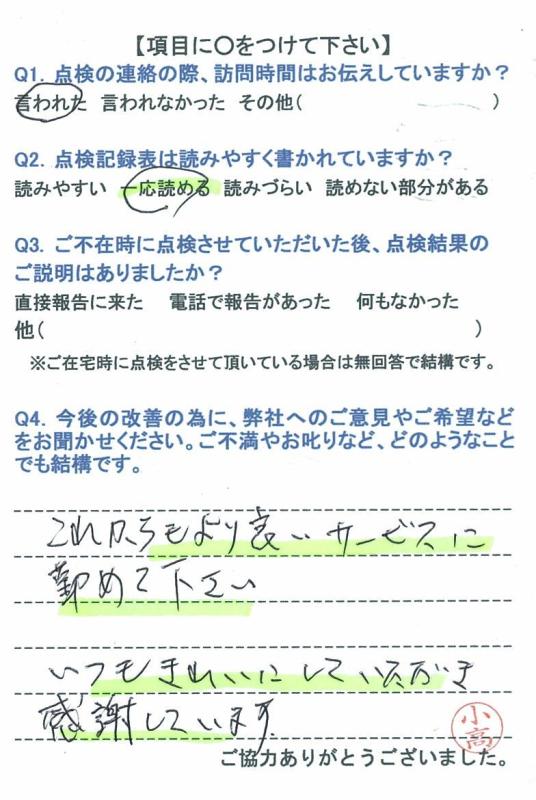 【項目に〇をつけて下さい】
Q1. 点検の連絡の際、訪問時間はお伝えしていますか？
言われた 言われなかった その他( )
Q2. 点検記録表は読みやすく書かれていますか？
読みやすい 一応読める 読みづらい 読めない部分がある
Q3. ご不在時に点検させていただいた後、点検結果の
ご説明はありましたか？
直接報告に来た 電話で報告があった 何もなかった
他( )
※ご在宅時に点検をさせて頂いている場合は無回答で結構です。
Q4. 今後の改善の為に、弊社へのご意見やご希望など
をお聞かせください。ご不満やお叱りなど、どのようなこと
でも結構です。
これからもより良いサービスに
勤めて下さい
いつもきれいにしていただき
感謝しています。
小高
ご協力ありがとうございました。